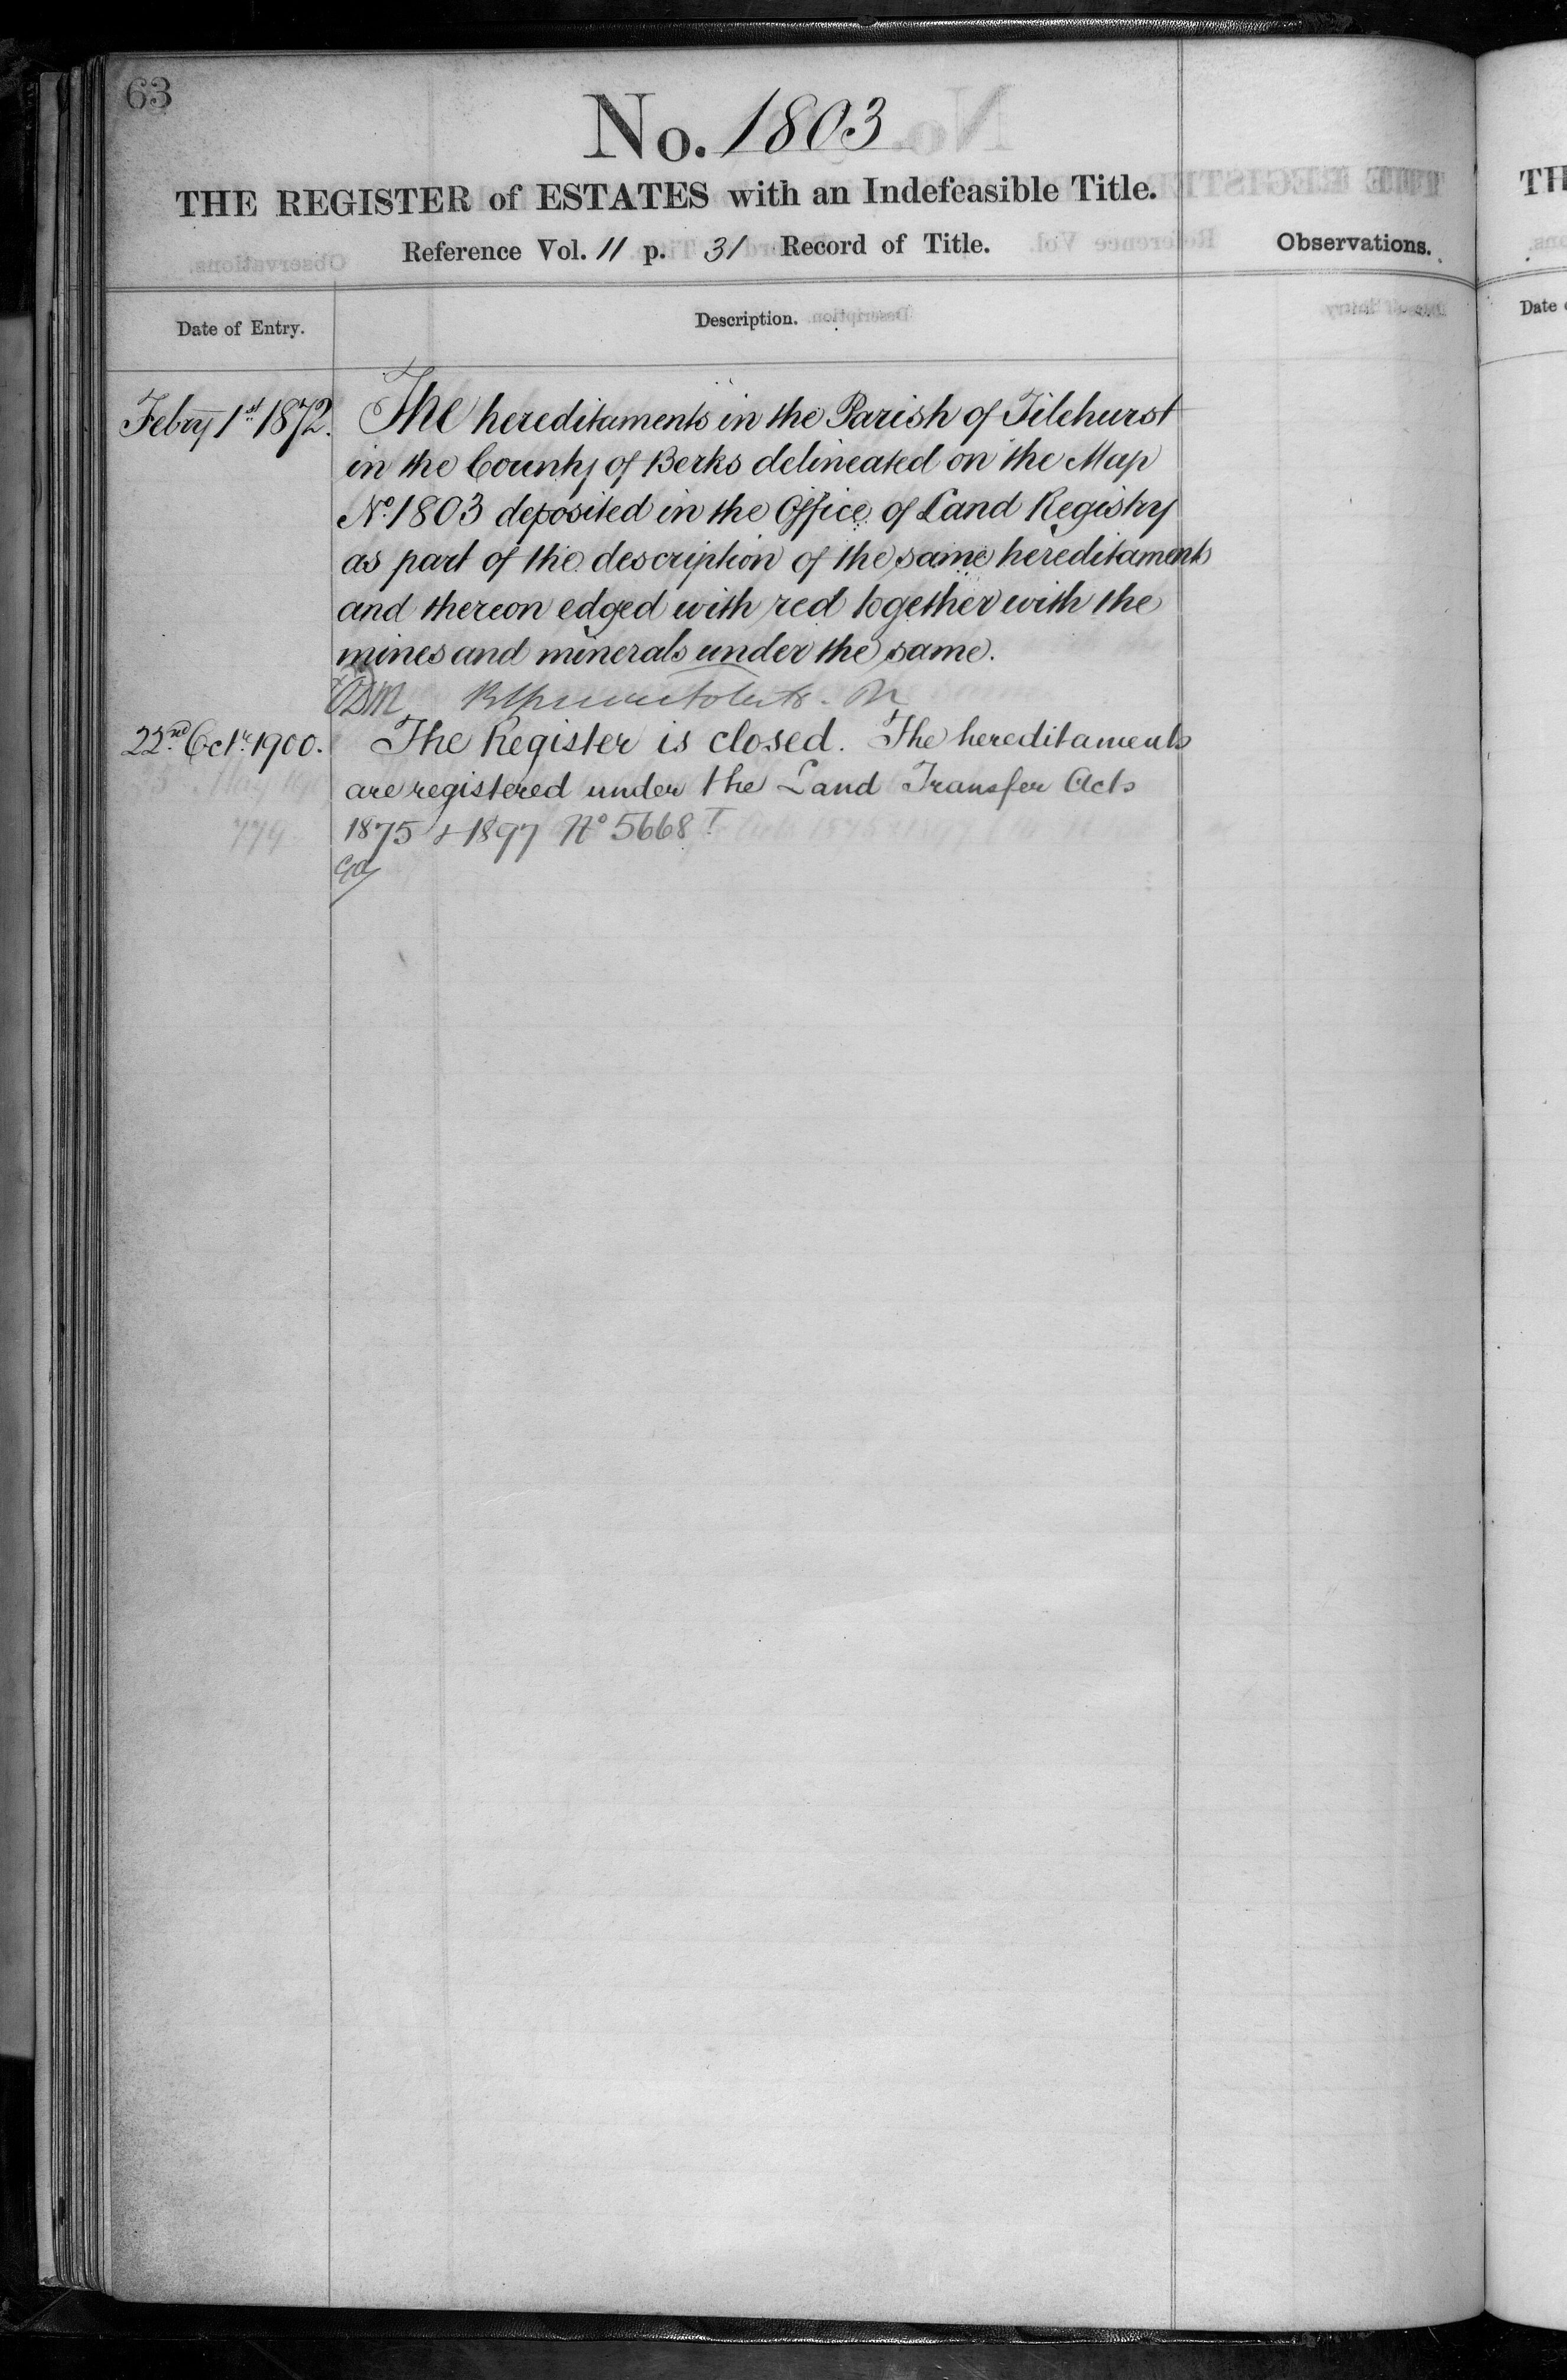 63
No. 1803
THE REGISTER of ESTATES with an Indefeasible Title.
Reference Vol. 11 p. 31 Record of Title.
Observations.
Date of Entry.
Description.
Febry 1st 1872.
The hereditaments in the Parish of Tilehurst
in the County of Berks delineated on the Map
No. 1803 deposited in the Office of Land Registry
as part of the description of the same hereditaments
and thereon edged with red together with the
mines and minerals under the same.
22nd Octr. 1900.
The Register is closed. The hereditaments
are registered under the Land Transfer Acts
1875 & 1897 No 5668
TH
Date